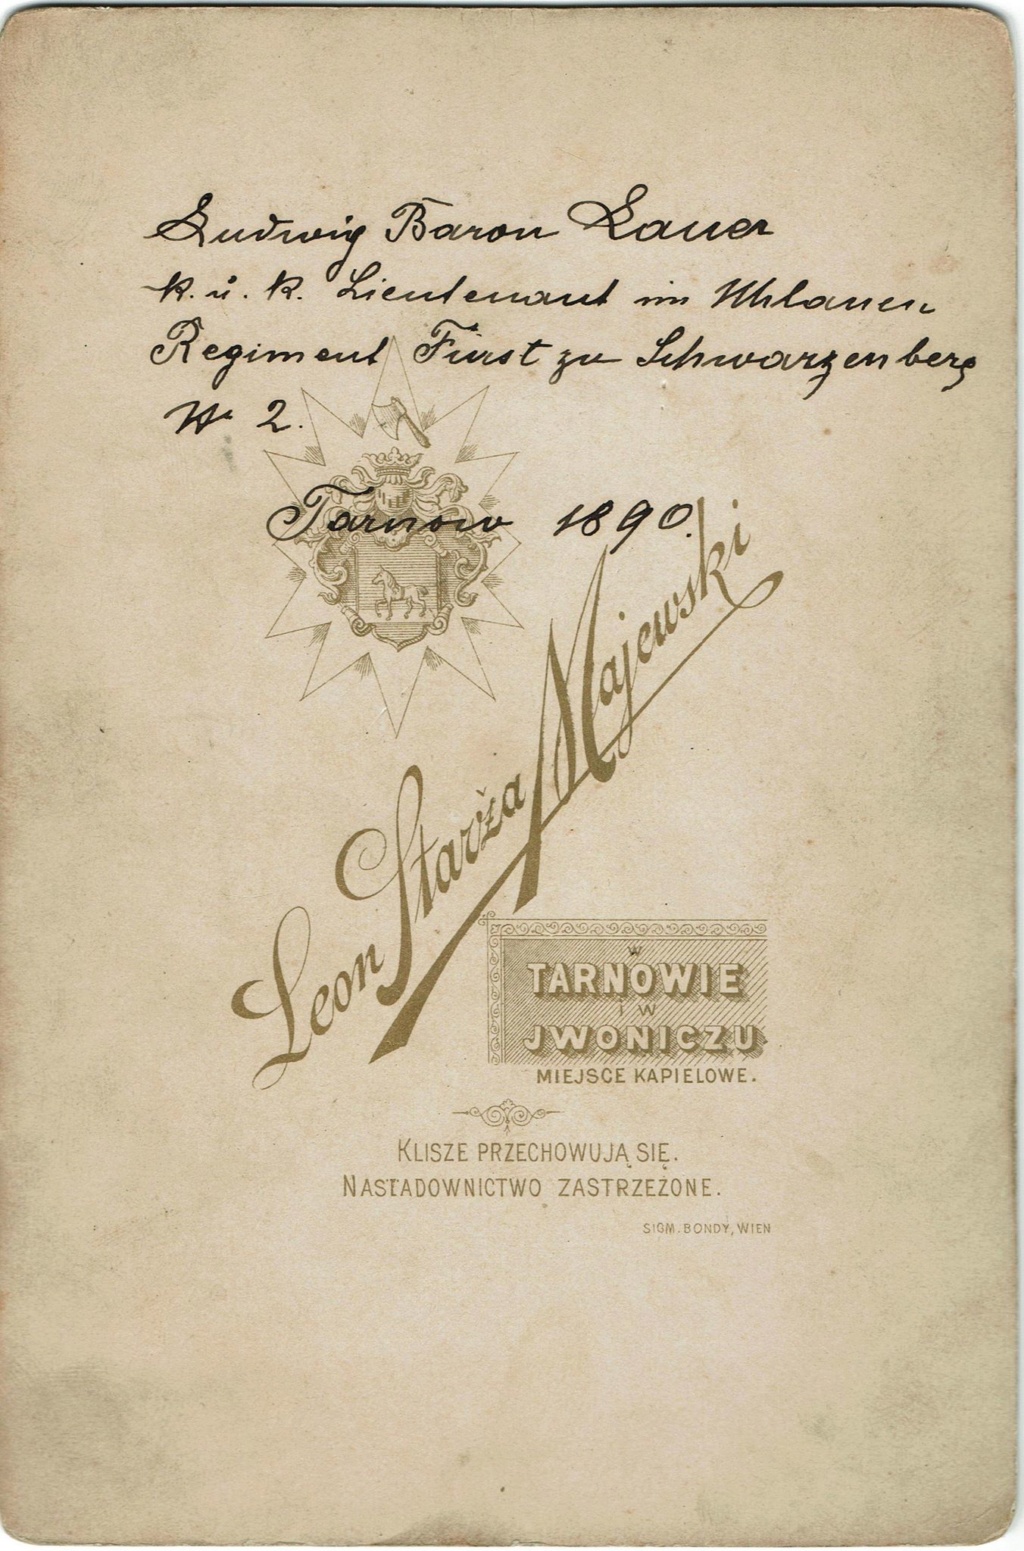 Ludwig Baron Lauer
k. u. k. Lieutenant im Uhlanen
Regiment Fürst zu Schwarzenberg
No 2.
Tarnow 1890.
Leon Starża Majewski
W
TARNOWIE
i W
JWONICZU
MIEJSCE KAPIELOWE.
KLISZE PRZECHOWUJĄ SIĘ.
NASŁADOWNICTWO ZASTRZEŻONE.
SIGM. BONDY, WIEN